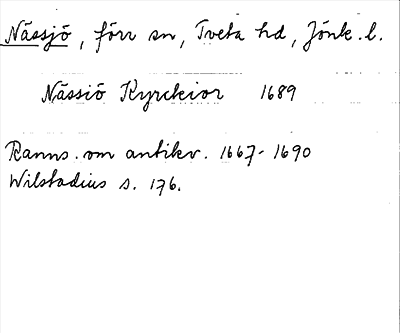 Nässjö, förr sn, Tveta hd, Jönk. l.
Nässiö Kyrckior 1689
Ranns. om antikv. 1667-1690
Wilstadius s. 176.